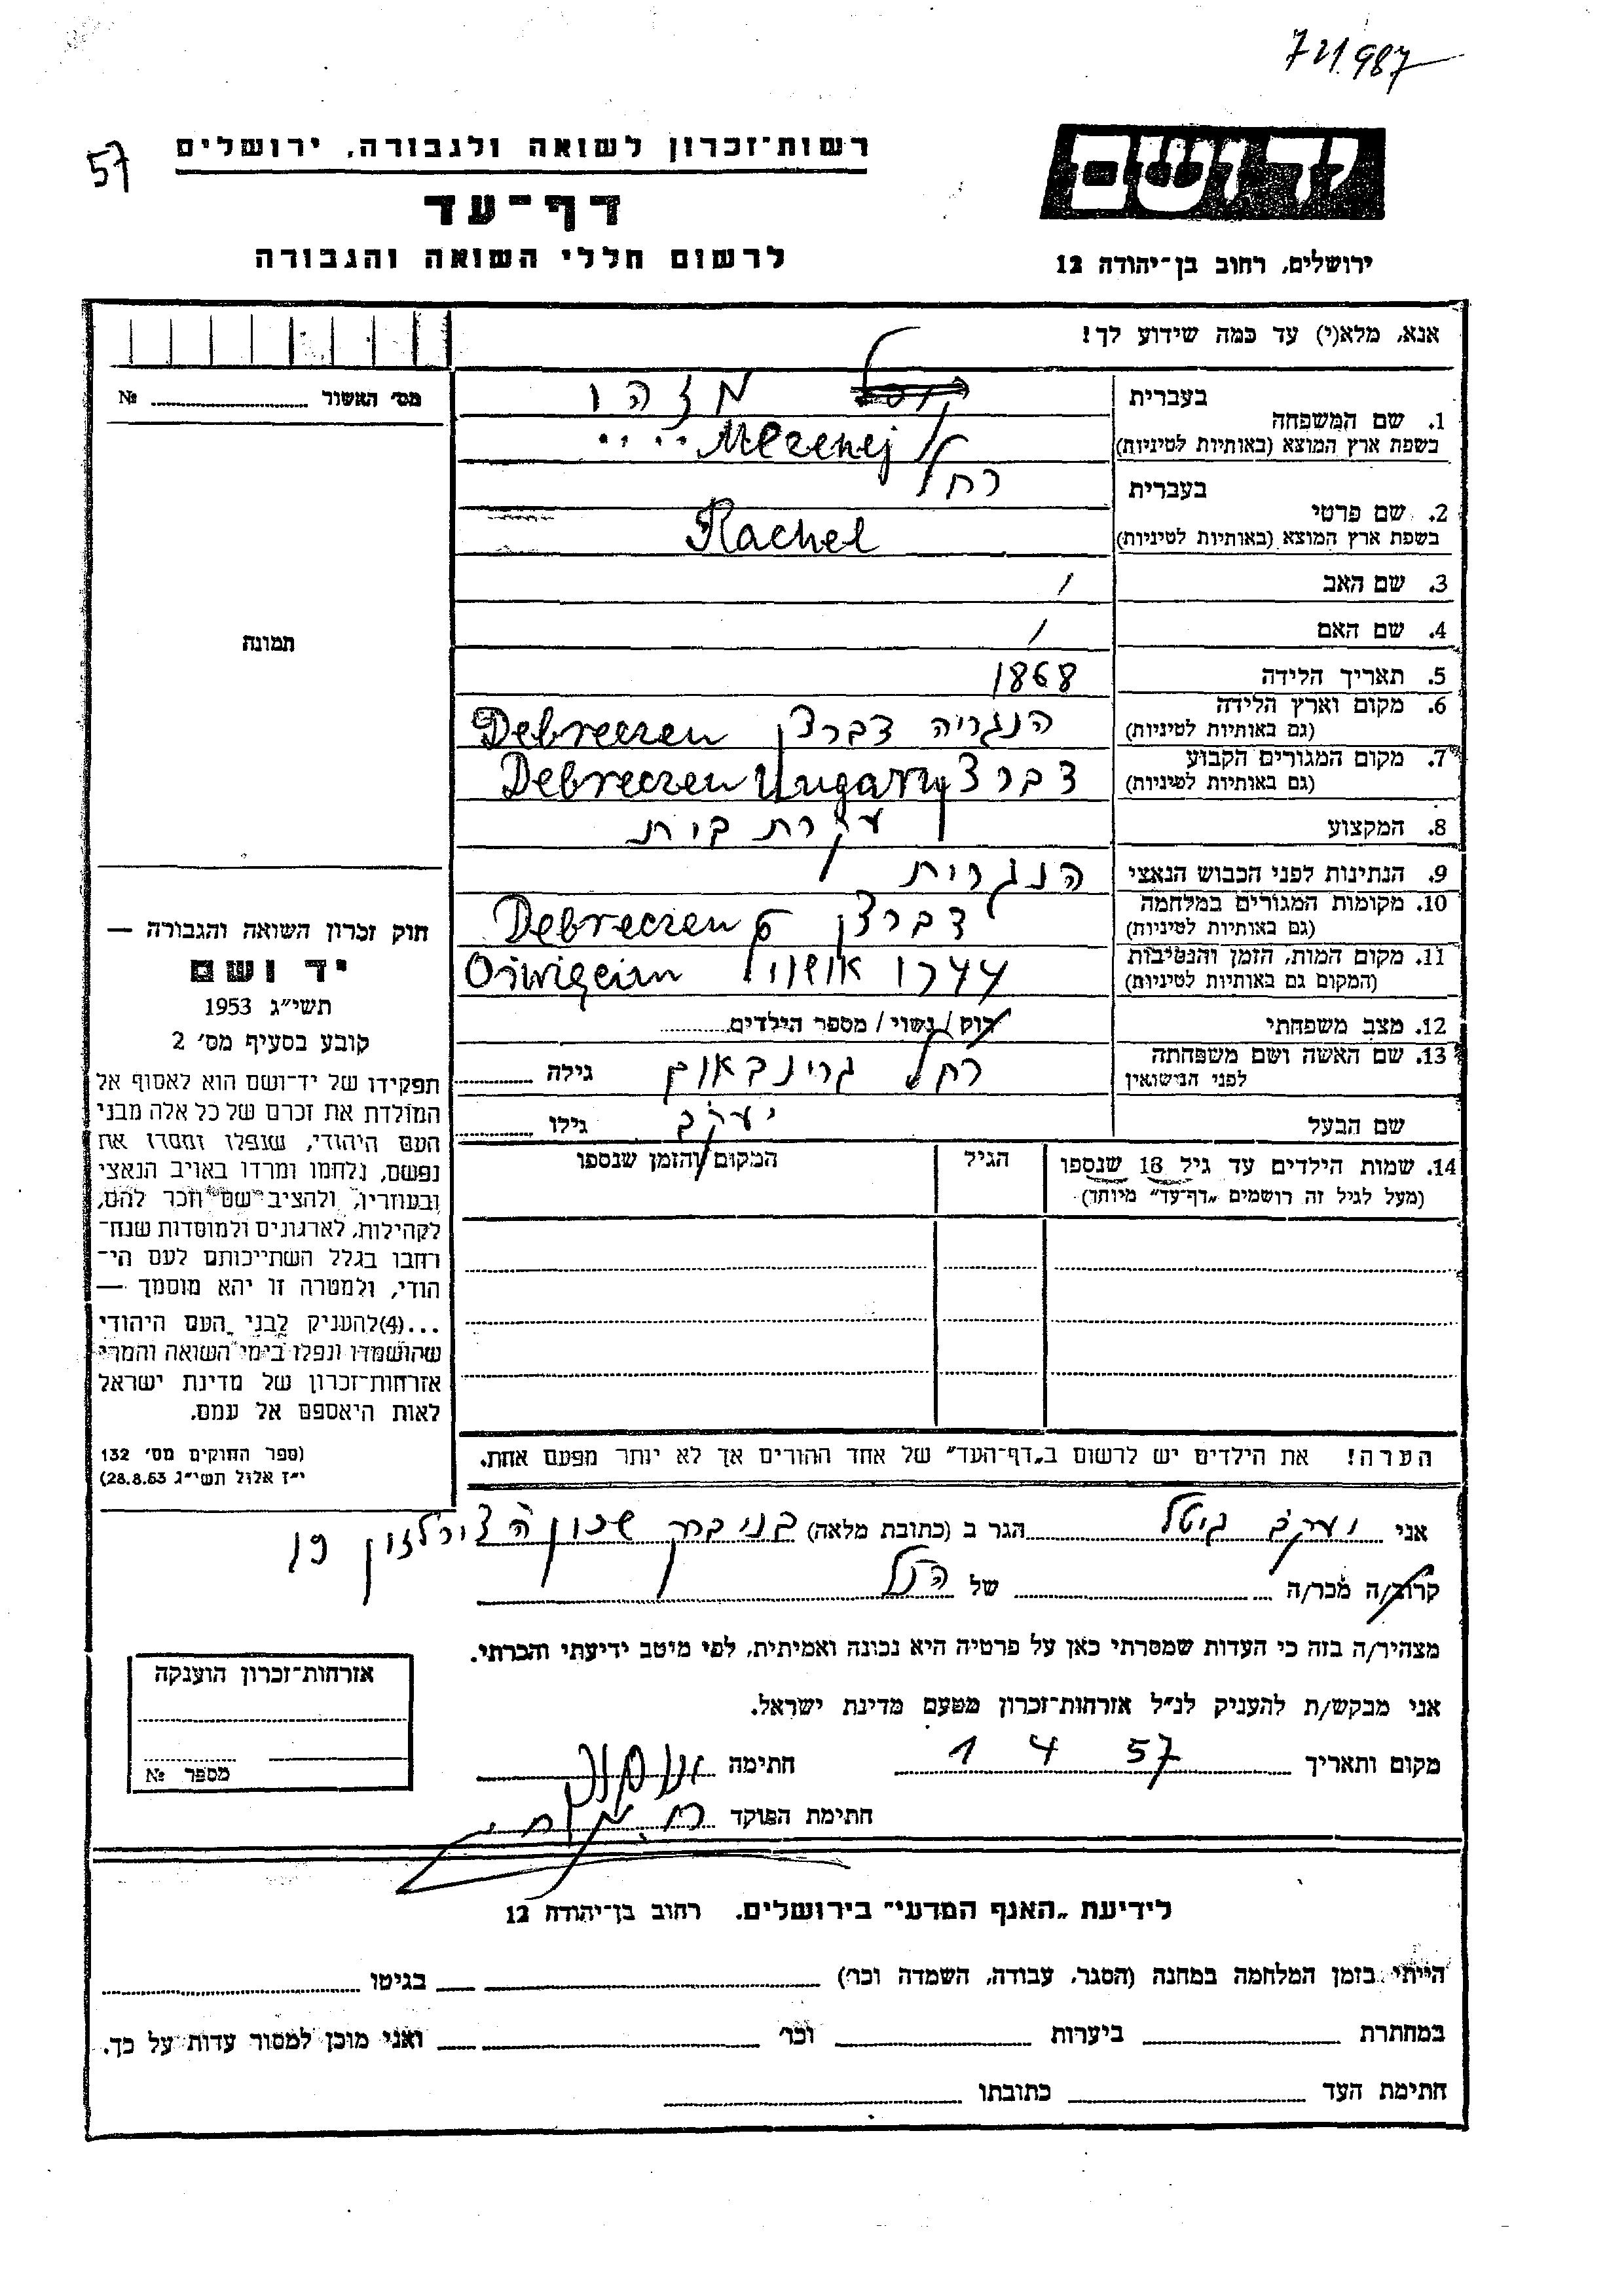 721.987
57
רשות־זכרון לשואה ולגבורה, ירושלים
דף־עד
לרשום חללי השואה והגבורה
יד ושם
ירושלים, רחוב בן־יהודה 12
אנא, מלא(י) עד כמה שידוע לך!
מס׳ האשור № 
1. שם המשפחה
בעברית
בשפת ארץ המוצא (באותיות לטיניות)
Mezehej
2. שם פרטי
בעברית רחל
בשפת ארץ המוצא (באותיות לטיניות) Rachel
3. שם האב /
4. שם האם /
5. תאריך הלידה 1868
6. מקום וארץ הלידה
(גם באותיות לטיניות) הנגריה דברצן Debreczen
7. מקום המגורים הקבוע
(גם באותיות לטיניות) דברצן Debreczen Ungarn
8. המקצוע עקרת בית
9. הנתינות לפני הכבוש הנאצי הנגרית
10. מקומות המגורים במלחמה
(גם באותיות לטיניות) דברצן Debreczen
11. מקום המות, הזמן והנסיבות
(המקום גם באותיות לטיניות) 1944
12. מצב משפחתי רוק/נשוי/מספר הילדים
13. שם האשה ושם משפחתה
לפני הנישואין רחל גרינבאום גילה
שם הבעל יעקב גילו
14. שמות הילדים עד גיל 18 שנספו
(מעל לגיל זה רושמים „דף־עד״ מיוחד)
הגיל
המקום והזמן שנספו
הערה! את הילדים יש לרשום ב„דף־העד״ של אחד ההורים אך לא יותר מפעם אחת.
תמונה
חוק זכרון השואה והגבורה —
יד ושם
תשי״ג 1953
קובע בסעיף מס׳ 2
תפקידו של יד־ושם הוא לאסוף אל
המולדת את זכרם של כל אלה מבני
העם היהודי, שנפלו ומסרו את
נפשם, נלחמו ומרדו באויב הנאצי
ובעוזריו, ולהציב שם וזכר להם,
לקהילות, לארגונים ולמוסדות שנח־
רחבו בגלל השתייכותם לעם הי־
הודי, ולמטרה זו יהא מוסמך —
...(4)להעניק לבני העם היהודי
שהושמדו ונפלו בימי השואה והמרי
אזרחות־זכרון של מדינת ישראל
לאות היאספם אל עמם.
(ספר החוקים מס׳ 132
י״ז אלול תשי״ג 28.8.53)
אני יעקב הגר ב (כתובת מלאה) בני ברק שכון
קרוב/ה מכר/ה של הנ״ל
מצהיר/ה בזה כי העדות שמסרתי כאן על פרטיה היא נכונה ואמיתית, לפי מיטב ידיעתי והכרתי.
אני מבקש/ת להעניק לנ״ל אזרחות־זכרון מטעם מדינת ישראל.
מקום ותאריך 1 4 57 חתימה
חתימת הפוקד
אזרחות־זכרון הוענקה
מספר №
לידיעת „האגף המדעי״ בירושלים. רחוב בן־יהודה 12
הייתי בזמן המלחמה במחנה (הסגר, עבודה, השמדה וכר) בגיטו
במחתרת ביערות וכר׳ ואני מוכן למסור עדות על כך.
חתימת העד כתובתו